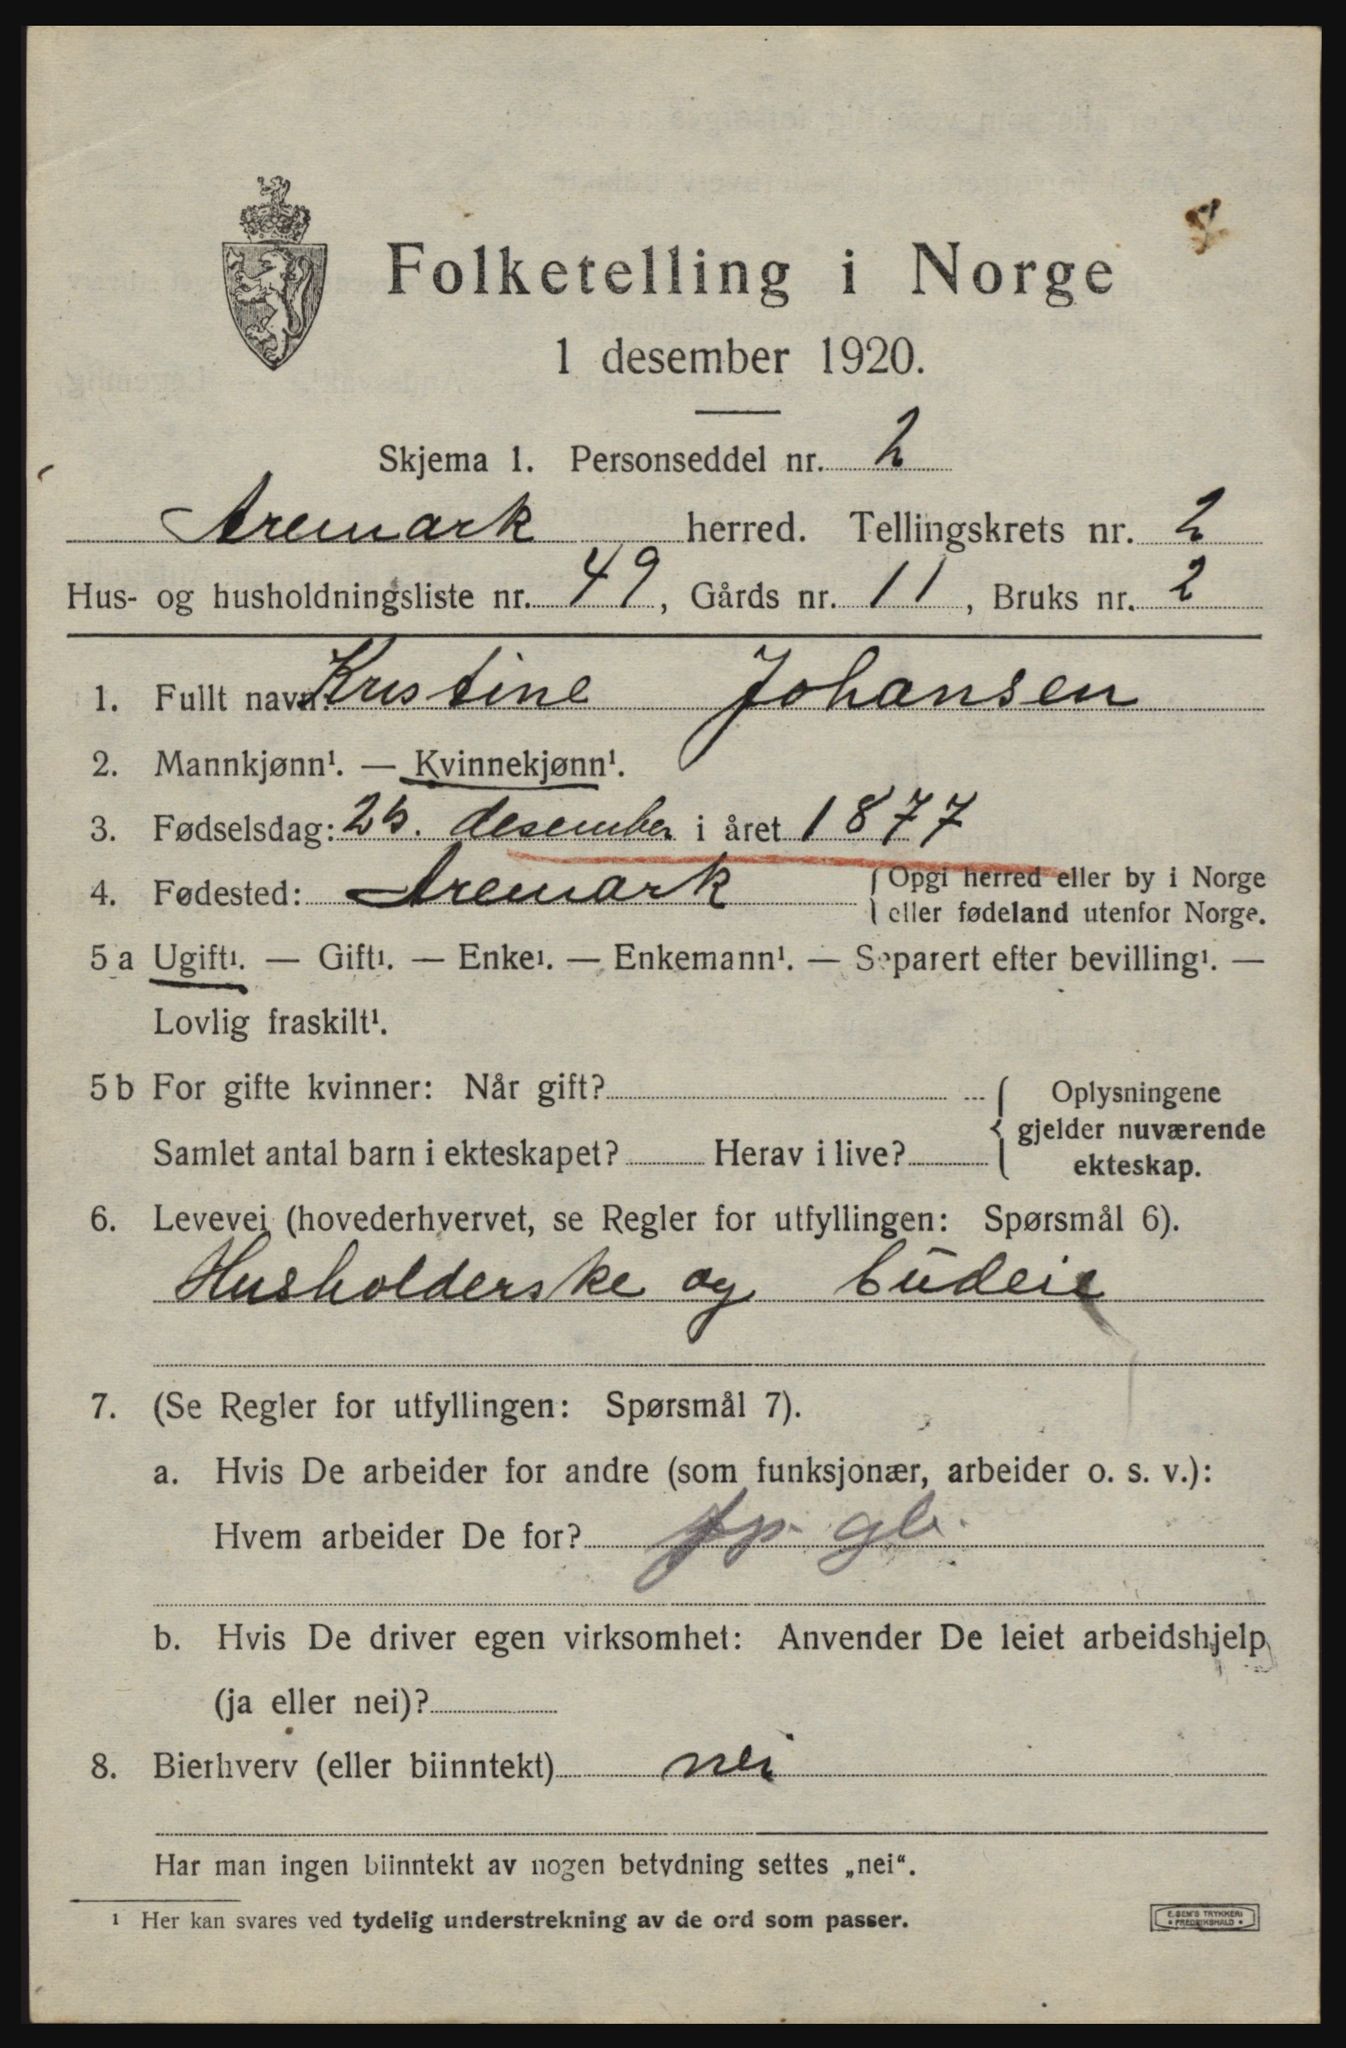 Folketelling i Norge
1 desember 1920.
Skjema 1. Personseddel nr. 2
Aremark herred. Tellingskrets nr. 2
Hus- og husholdningsliste nr. 49, Gårds nr. 11, Bruks nr. 2
1. Fullt navn: Kristine Johansen
2. Mannkjønn¹. — Kvinnekjønn¹.
3. Fødselsdag: desember i året 1877
4. Fødested: Aremark { Opgi herred eller by i Norge
eller fødeland utenfor Norge.
5 a Ugift¹. — Gift¹. — Enke¹. — Enkemann¹. — Separert efter bevilling¹. —
Lovlig fraskilt¹.
5 b For gifte kvinner: Når gift?
Samlet antal barn i ekteskapet? Herav i live? { Oplysningene
gjelder nuværende
ekteskap.
6. Levevei (hovederhvervet, se Regler for utfyllingen: Spørsmål 6).
Husholderske og budeie
7. (Se Regler for utfyllingen: Spørsmål 7).
a. Hvis De arbeider for andre (som funksjonær, arbeider o. s. v.):
Hvem arbeider De for?
b. Hvis De driver egen virksomhet: Anvender De leiet arbeidshjelp
(ja eller nei)?
8. Bierhverv (eller biinntekt) nei
Har man ingen biinntekt av nogen betydning settes „nei“.
¹ Her kan svares ved tydelig understrekning av de ord som passer.
E. SEM'S TRYKKERI
FREDRIKSHALD